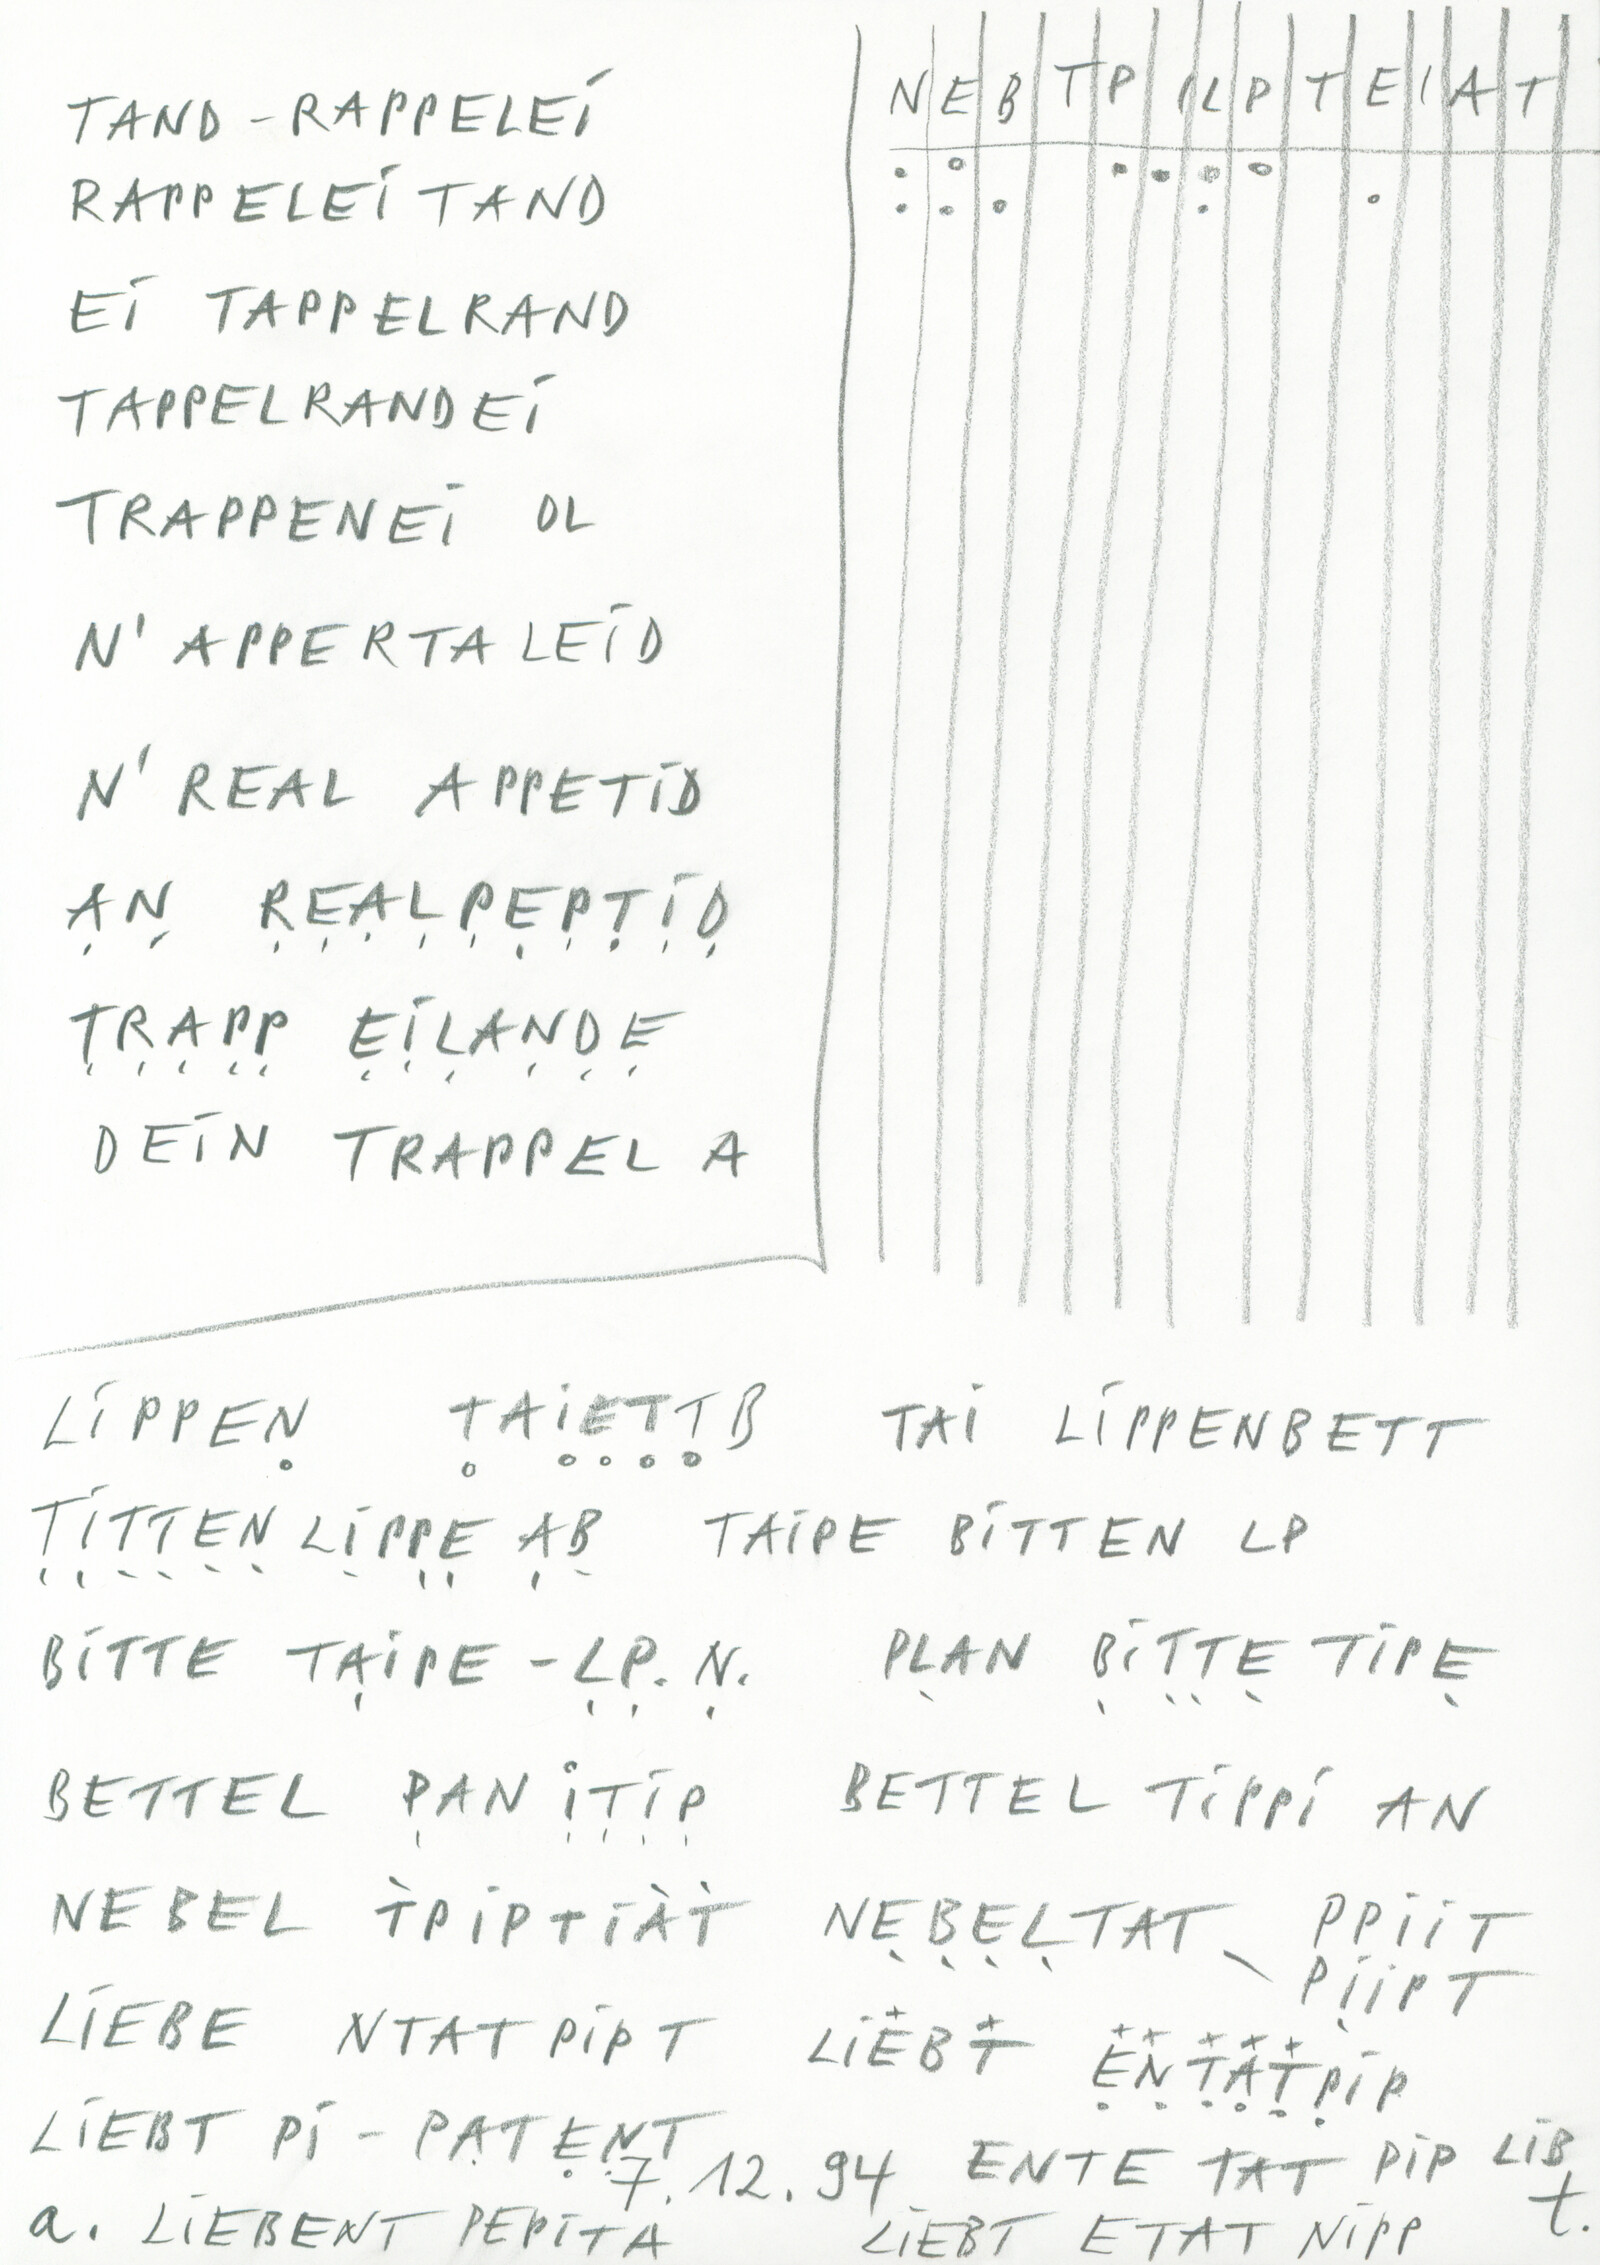 TAND - RAPPELEI
RAPPELEI TAND
EI TAPPELRAND
TAPPELRANDEI
TRAPPENEI DL
N' APPERTALEID
N' REAL APPETID
AN REALPEPTID
TRAPP EILANDE
DEIN TRAPPEL A
N E B T P I L P T E I A T
LIPPEN TAIETTB TAI LIPPENBETT
TITTEN LIPPE AB TAIPE BITTEN LP
BITTE TAIPE - LP. N. PLAN BITTE TIPE
BETTEL PAN ITIP BETTEL TIPPI AN
NEBEL TPIPTIAT NEBELTAT PPIIT
PIIPT
LIEBE NTAT PIPT LIEBT ENTATPIP
LIEBT PI - PATENT
7.12.94 ENTE TAT PIP LIB
t.
a. LIEBENT PEPITA LIEBT ETAT NIPP